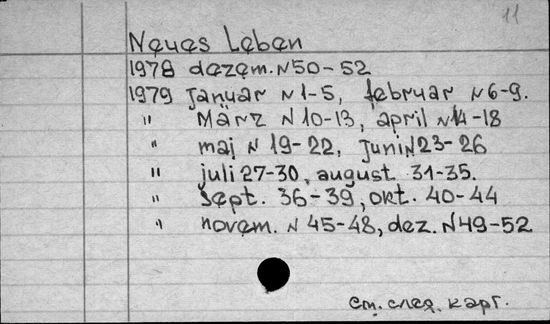 11
Neues Leben
1978 dezem. N 50-52
1979 januar N 1-5, februar N 6-9.
" März N 10-13, april N 14-18
" maj N 19-22, juni N 23-26
" juli 27-30, august 31-35.
" sept. 36-39, okt. 40-44
" novem. N 45-48, dez. N 49-52
См. след. карт.